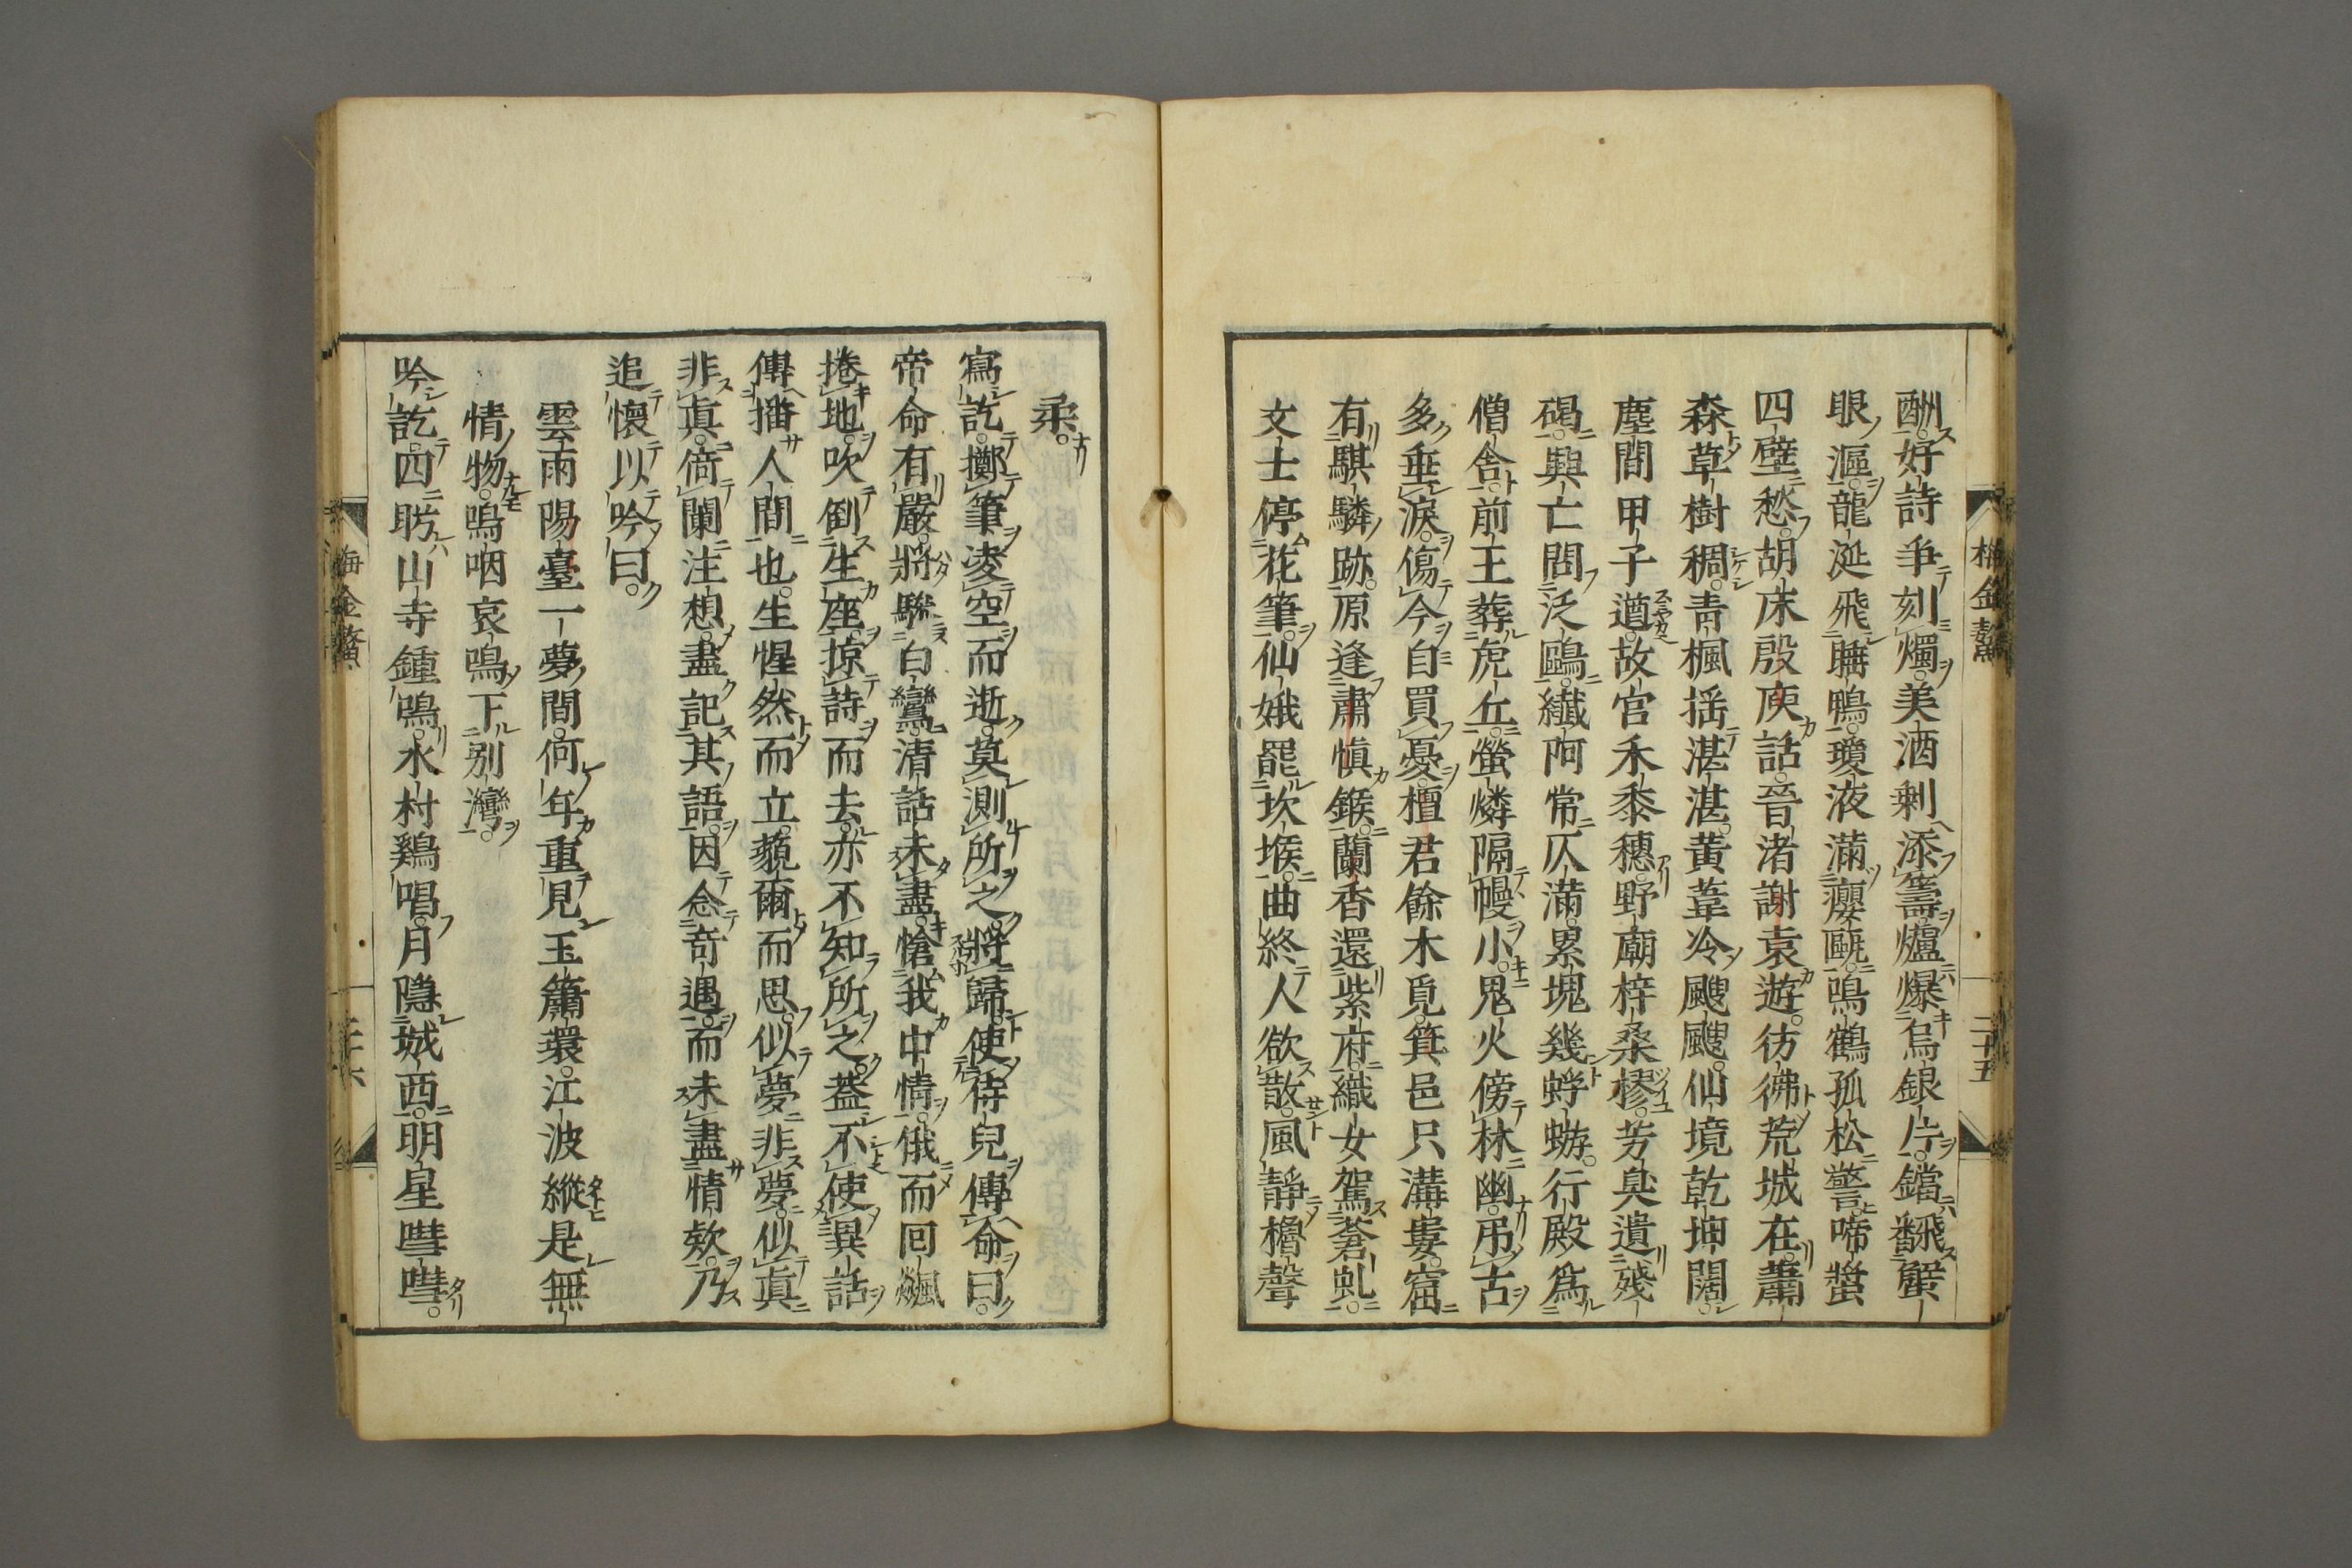 酬。好詩爭刻燭。美酒剩添籌。爐爆烏銀片。鐺飜蟹
眼漚。龍涎飛睡鴨。瓊液滿癭甌。鳴鶴孤松警。啼螿
四壁愁。胡床殷庾話。晉渚謝袁遊。彷彿荒城在。蕭
森草樹稠。青楓搖湛湛。黃葦冷颼颼。仙境乾坤闊。
塵間甲子遒。故宮禾黍穗。野廟梓桑樛。芳臭遺殘
碣。興亡問泛鷗。纖阿常仄滿。累塊幾蜉蝣。行殿爲
僧舍。前王葬虎丘。螢燐隔幔小。鬼火傍林幽。吊古
多垂淚。傷今自買憂。檀君餘木覓。箕邑只溝婁。窟
有騏驎跡。原逢肅愼鍭。蘭香還紫府。織女駕蒼虬。
文士停花筆。仙娥罷坎堠。曲終人欲散。風靜櫓聲
梅金鰲 二十五
柔。
寫訖。擲筆凌空而逝。莫測所之。將歸。使侍兒傳命曰。
帝命有嚴。將驂白鸞。清話未盡。愴我中情。俄而回飇
捲地。吹倒生座。掠詩而去。亦不知所之。蓋不使異話
傳播人間也。生惺然而立。藐爾而思。似夢非夢。似眞
非眞。倚闌注想。盡記其語。因念奇遇。而未盡情欵。乃
追懷以吟曰。
雲雨陽臺一夢間。何年重見玉簫環。江波縱是無
情物。嗚咽哀鳴下別灣。
吟訖。四盻山寺鍾鳴。水村鷄唱。月隱城西。明星嘒嘒。
梅金鰲 二十六